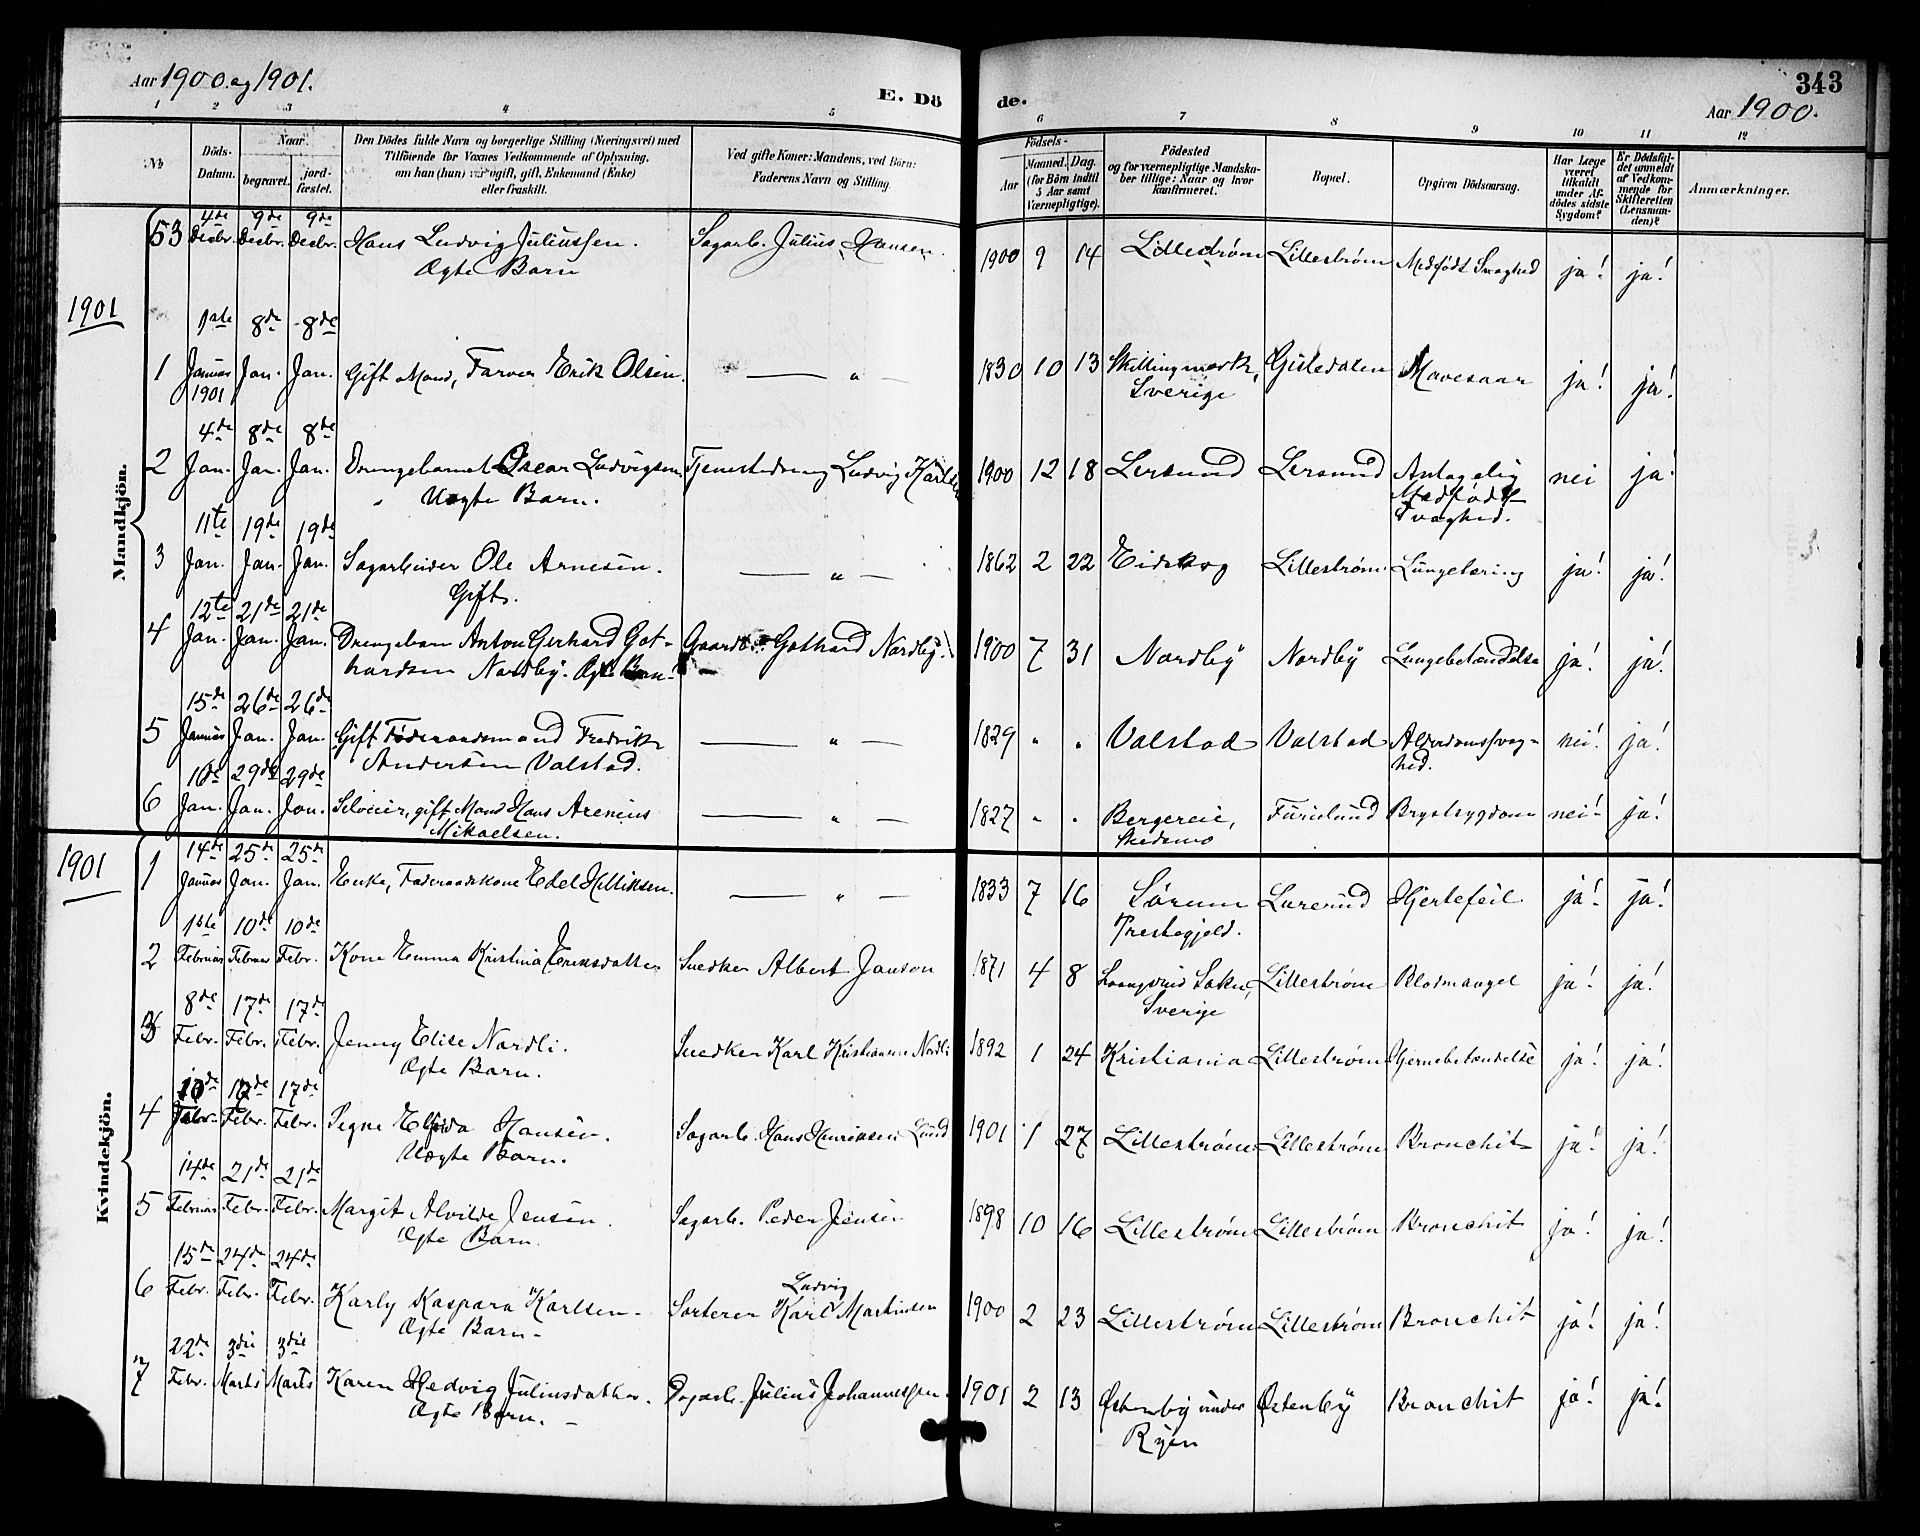 Aar 1900 og 1901.
E. Dö
de.
343
Aar 1900.
1 2 3 4 5 6 7 8 9 10 11 12
No
Döds-Datum.
Naar
begravet.
jord-fæstet.
Den Dödes fulde Navn og borgerlige Stilling (Næringsvei) med
Tilföiende for Voxnes Vedkommende af Oplysning,
om han (hun) var ugift, gift, Enkemand (Enke)
eller fraskilt.
Ved gifte Koner: Mandens, ved Börn:
Faderens Navn og Stilling.
Födsels-
Aar
Maaned. Dag.
(for Börn indtil
5 Aar samt
Værnepligtige).
Födested
og for værnepligtige Mandska-
ber tillige: Naar og hvor
konfirmeret.
Bopæl.
Opgiven Dödsaarsag.
Har Læge
været
tilkaldt
under Af-
dödes sidste
Sygdom?
Er Dödsfal-
det anmeldt
af Vedkom-
mende for
Skifteretten
(Lensman-
den)?
Anmærkninger.
Mandkjön.
53 4de Decbr. 9de Decbr. 9de Decbr. Hans Ludvig Juliussen. Sagarb. Julius Hansen. 1900 9 14 Lillestrøm Lillestrøm Medfødt Svaghed ja! ja!
Ægte Barn
1901
1 1ste Januar 1901 8de Jan. 8de Jan. Gift Mand, Farver Erik Olsen. — " — 1830 10 13 Skillingmark, Gistedalen Mavesaar ja! ja!
Sverige
2 4de Jan. 8de Jan. 8de Jan. Drengebarnet Oscar Ludvigsen Tjenestedreng Ludvig Karlsen 1900 12 18 Lersund Lersund Antagelig nei ja!
Uægte Barn. Medfødt
Svaghed.
3 11te Jan. 19de Jan. 19de Jan. Sagarbeider Ole Arnesen. — " — 1862 2 22 Eidskog Lillestrøm Lungetæring ja! ja!
Gift.
4 12te Jan. 21de Jan. 21de Jan. Drengebarn Anton Gerhard Got- Gaardb. Gothard Nordby. 1900 7 31 Nordby Nordby Lungebetændelse ja! ja!
hardsen Nordby. Ægte Barn —
5 15de Januar 26de Jan. 26de Jan. Gift Føderaadsmand Fredrik — " — 1829 " " Valstad Valstad Alderdomssvag- nei! ja!
Andersen Valstad. hed.
6 16de Jan. 29de Jan. 29de Jan. gift Mand Hans Arenius — " — 1827 " " Bergereie, Furulund Brystsygdom nei! ja!
Mikaelsen. Skedsmo
Kvindekjön.
1901
1 14de Januar 25de Jan. 25de Jan. Enke, Føderaadskone Edel — " — 1833 7 16 Sørum Lurerud Hjertefeil. ja! ja!
Prestegjeld.
2 1ste Februar 10de Februar 10de Febr. Kone Emma Kristina Eriksdatter Snedker Albert Janson 1871 4 8 Lillestrøm Blodmangel ja! ja!
Sverige
3 8de Febr. 17de Febr. 17de Febr. Jenny Elise Nordli. Snedker Karl Kristiansen Nordli 1892 1 24 Kristiania Lillestrøm Hjernebetændelse ja! ja!
Ægte Barn.
4 10de Febr. 17de Febr. 17de Febr. Signe Elfrida Hansen. Sagarb. Hans Henriksen Lund 1901 1 27 Lillestrøm Lillestrøm Bronchit ja! ja!
Uægte Barn.
5 14de Februar 21de Febr. 21de Febr. Margit Alvilde Jensen. Sagarb. Peder Jensen 1898 10 16 Lillestrøm Lillestrøm Bronchit ja! ja!
Ægte Barn.
6 15de Febr. 24de Febr. 24de Febr. Karly Kaspara Karlsen — Sorterer Karl Ludvig Martinsen 1900 2 23 Lillestrøm Lillestrøm Bronchit ja! ja!
Ægte Barn —
7 22de Febr. 3die Marts 3die Marts Karen Hedvig Juliusdatter. Dagarb. Julius Johannessen. 1901 2 13 Østenby under Østenby Bronchit ja! ja!
Ægte Barn. — Ryen